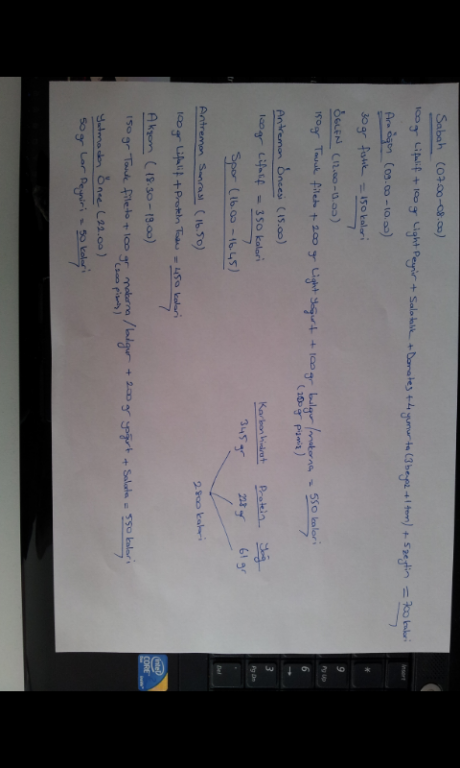 Sabah (07.00-08.00)
100 gr Lifalif + 100 gr Light Peynir + Salatalık + Domates + 4 yumurta (3 beyaz + 1 tam) + 5 zeytin = 700 kalori
Ara Öğün (09.00-10.00)
30 gr fıstık = 150 kalori
ÖĞLEN (12.00-13.00)
150 gr Tavuk fileto + 200 gr Light Yoğurt + 100 gr bulgur/makarna = 550 kalori
(200 gr pişmiş)
Antreman Öncesi (15.00)
100 gr Lifalif = 350 kalori
Spor (16.00 - 16.45)
Antreman Sonrası (16.50)
100 gr Lifalif + Protein Tozu = 450 kalori
Akşam (18.30-19.00)
150 gr Tavuk fileto + 100 gr makarna/bulgur + 200 gr yoğurt + Salata = 550 kalori
(200 pişmiş)
Yatmadan Önce (22.00)
50 gr Lor Peyniri = 50 kalori
Karbonhidrat Protein Yağ
345 gr 228 gr 61 gr
2800 kalori
Insert
*
9
PgUp
6
3
PgDn
Del
intel
CORE